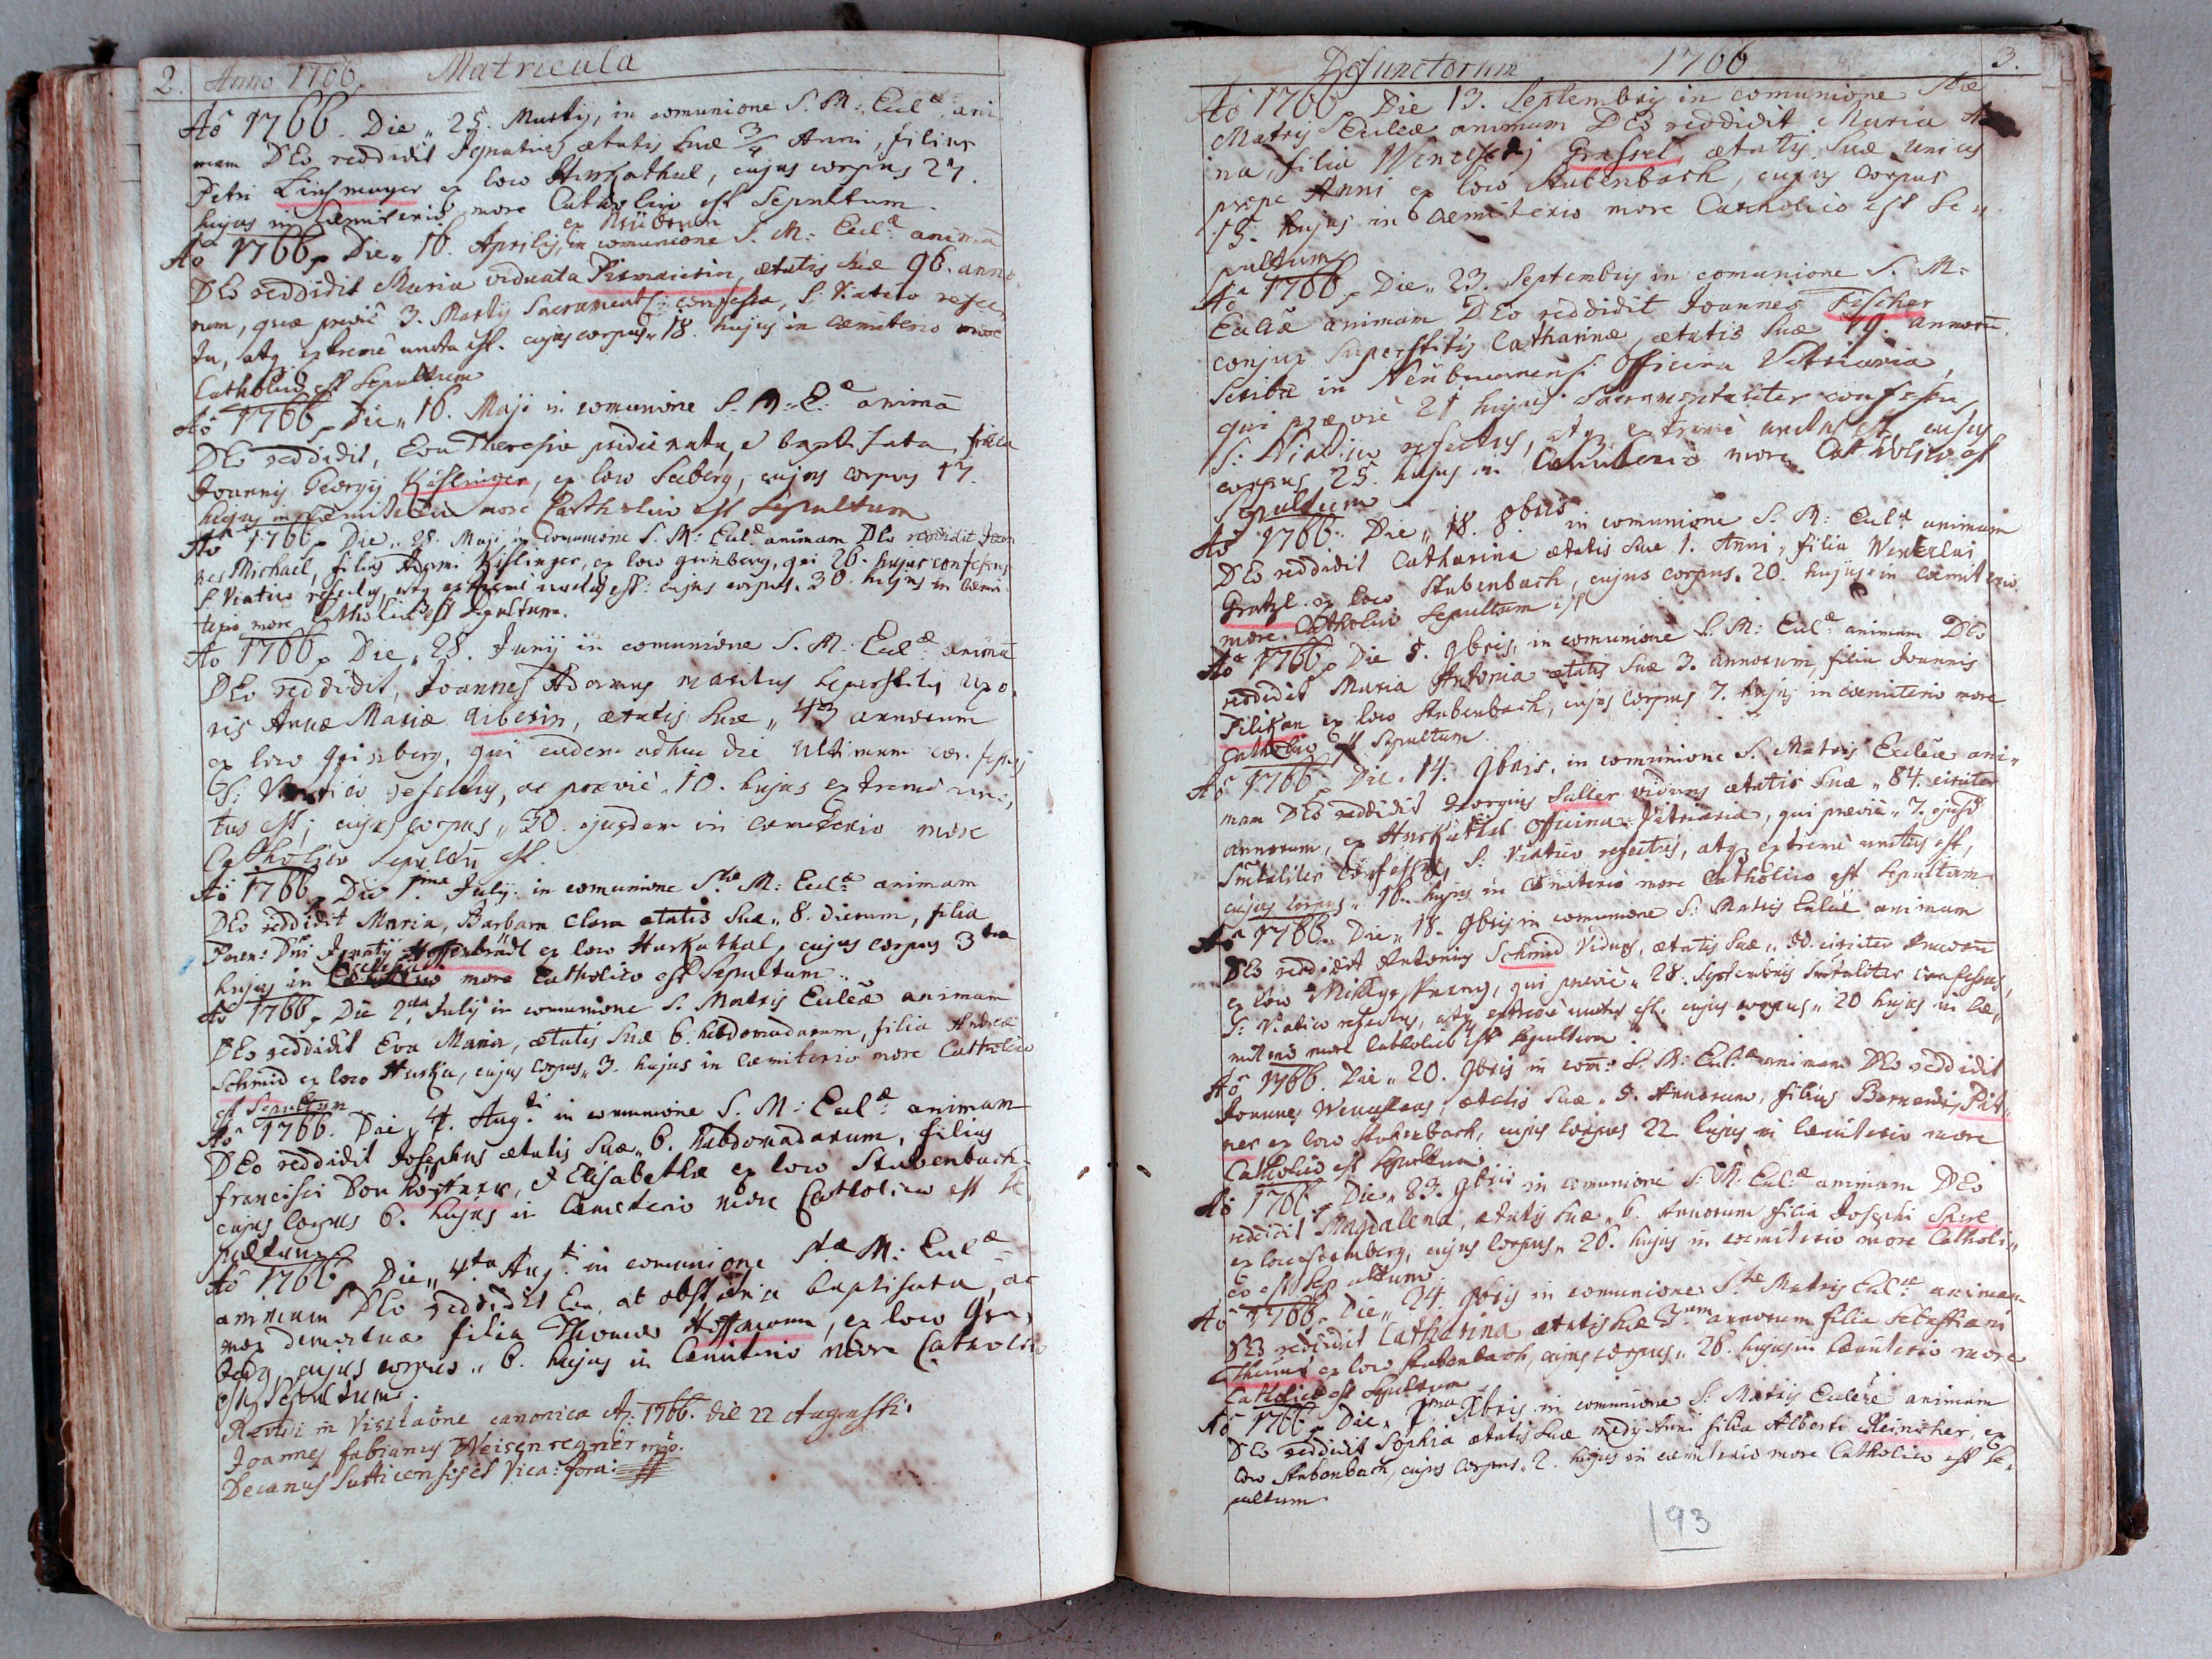 2. Anno 1766. Matricula
Aõ 1766. Die „ 25. Martij, in comunione S. M: Eccl.æ ani
mam DEo reddidit Ignatius ætatis suæ 3/4 Anni, filius
Petri Linsmayer ex loco Hurkathal, cujus corpus 27.
hujus in Cæmiterio more Catholico est Sepultum.
Aõ 1766. Die „ 16. Aprilis, in comunione S. M: Eccl.æ animã
DEo reddidit Maria viduata ætatis suæ 96. anno
rum, quæ previè 3. Martij Sacramentl: confessa, S. Viatico refec
ta, atq extremè uncta est. cujus corpus „ 18. hujus in cæmiterio more
Catholico est Sepultum
Aõ 1766. Die „ 16. Maji in comunione S. M: E.æ animã
DEo reddidit, Eva Theresia pridie nata, e bapt. filia
Joannis Georgij Kislinger, ex loco Seeberg, cujus corpus 17.
hujus in Cæmiterio more Catholico est Sepultum
Aõ 1766. Die „ 28. Maji in Comunione S. M: Eccl.æ animam DEo reddidit Joan
nes Michael, filius Kislinger, ex loco grünberg, qui 26. hujus confessus
S. Viatico refectus, atq extreme unctus est: cujus corpus. 30. hujus in cæmi
terio more Catholico est Sepultum.
Aõ 1766. Die „ 28. Junij in comunione S. M: Eccl.æ animã
DEo reddidit, Joannes Adamus maritus superstitis uxo
ris Annæ Mariæ ætatis suæ „ 43 annorum
ex loco grünberg, qui eadem adhuc die ultimum confessus
S: Viatico refectus, ac prævie „ 10. hujus extremè unc
tus est; cujus corpus „ 30. ejusdem in cæmeterio more
Catholico sepultũ est.
Aõ 1766. Die 1.ma July. in comunione S.tæ M: Eccl.æ animam
DEo reddidit Maria, Barbara Clara ætatis suæ „ 8. dierum, filia
Dni Ignatij ex loco Hurkathal, cujus corpus 3tia
hujus in more Catholico est Sepultum.
Aõ 1766. Die 2.da July in comunione S. Matris Ecclesiæ animam
DEo reddidit Eva Maria, ætatis suæ 6. hebdomadarum, filia Andreæ
Schmid ex loco Hurka, cujus corpus „ 3. hujus in cæmiterio more Catholico
est Sepultum
Aõ 1766. Die „ 4. Aug.ti in comunione S. M: Eccl.æ animam
DEo reddidit Josephus ætatis suæ „ 6. hebdomadarum, filius
Francisci ex loco Stubenbach
cujus corpus 6. hujus in Cæmeterio more Catholico est se
pultum
Aõ 1766. Die „ 4ta Aug.ti in comunione S.tæ M: Eccl.æ
animam DEo reddidit Eva, ab obstetrice baptisata, ac
mox demortua filia Thomæ Hoffmann, ex loco
cujus corpus „ 6. hujus in Cæmiterio more Catholico
est Sepultum.
Revidi in Visitaõne canonica A: 1766. die 22 Augusti.
Joannes Fabianus Weisenregner mpp.
Decanus Sutticensis et Vica: fora:
Defunctorum 1766 3.
Aõ 1766. Die 13. Septembris in comunione Stæ
Matris Ecclesiæ animam DEo reddidit Maria
na, filia Wenceslaj Grassel, ætatis suæ unius
prope Anni ex loco Stubenbach, cujus corpus
15. hujus in cæmiterio more Catholico est se„
pultum
Aõ 1766. Die „ 23. Septembris in comunione S. M:
Ecclæ animam DEo reddidit Joannes Fischer
conjux superstitis Catharinæ, ætatis suæ 49. annorũ.
Scriba in Officina Vitriaria,
qui prævie 21 hujus Sacramentaliter confessus,
S: Viatico refectus, atq extremè unctus est cujus
corpus 25. hujus in Cæmiterio more Catholico est
Sepultum
Aõ 1766. Die „ 18. 8bris in comunione S. M: Eccl.æ animam
DEo reddidit Catharina ætatis suæ 1. Anni, filia Wenceslai
Gratzl ex loco Stubenbach, cujus corpus. 20. hujus in cæmiterio
more Catholico Sepultum est
Aõ 1766. Die 5. 9bris, in comunione S. M: Eccl.æ animam DEo
reddidit Maria Antonia ætatis suæ 3. annorum, filia Joannis
Pilikan ex loco Stubenbach, cujus corpus 7. hujus in cæmiterio more
Catholico est Sepultum.
Aõ 1766. Die „ 14. 9bris, in comunione S. Matris Ecclæ ani„
mam DEo reddidit Georgius Saller viduus ætatis suæ „ 84. circiter
annorum, ex Hurkathal officina Vitriaria, qui previè „ 7. ejusd
Smtaliter confessus, S: Viatico refectus, atq extremè unctus est,
cujus corpus „ 16. hujus in cæmiterio more Catholico est Sepultum
Aõ 1766. Die „ 18. 9bris in comunione S: Matris Ecclæ animam
DEo reddidit Antonius Schmid Viduus, ætatis suæ „ 50. circiter annorũ
ex loco qui previè „ 28. Septembris Smtaliter confessus,
S: Viatico refectus, atq extremè unctus est. cujus corpus „ 20 hujus in cæ„
miterio more Catholico est Sepultum
Aõ 1766. Die „ 20. 9bris in com: S. M: Eccl.æ animam DEo reddidit
Joannes Wenceslaus, ætatis suæ „ 5. Annorum, filius Bernardi Pit„
ner ex loco Stubenbach, cujus corpus 22 hujus in cæmiterio more
Catholico est Sepultum
Aõ 1766. Die „ 23. 9bris in comunione S: M. Eccl.æ animam DEo
reddidit Magdalena, ætatis suæ „ 6. Annorum filia Josephi
ex loco cujus corpus „ 26. hujus in cæmiterio more Catholi„
co est Sepultum.
Aõ 1766. Die „ 24. 9bris in comunione S.tæ Matris Eccl.æ animam
DEo reddidit Catharina ætatis suæ 3.um annorum filia Sebastiani
ex loco Stubenbach, cujus corpus „ 26. hujus in cæmiterio more
Catholico est Sepultum
Aõ 1766. Die „ 1.ma Xbris in comunione S: Matris Ecclesiæ animam
DEo reddidit Sophia ætatis suæ medij Anni filia Alberti ex
loco Stubenbach, cujus corpus. 2. hujus in cæmiterio more Catholico est Se„
pultum
193